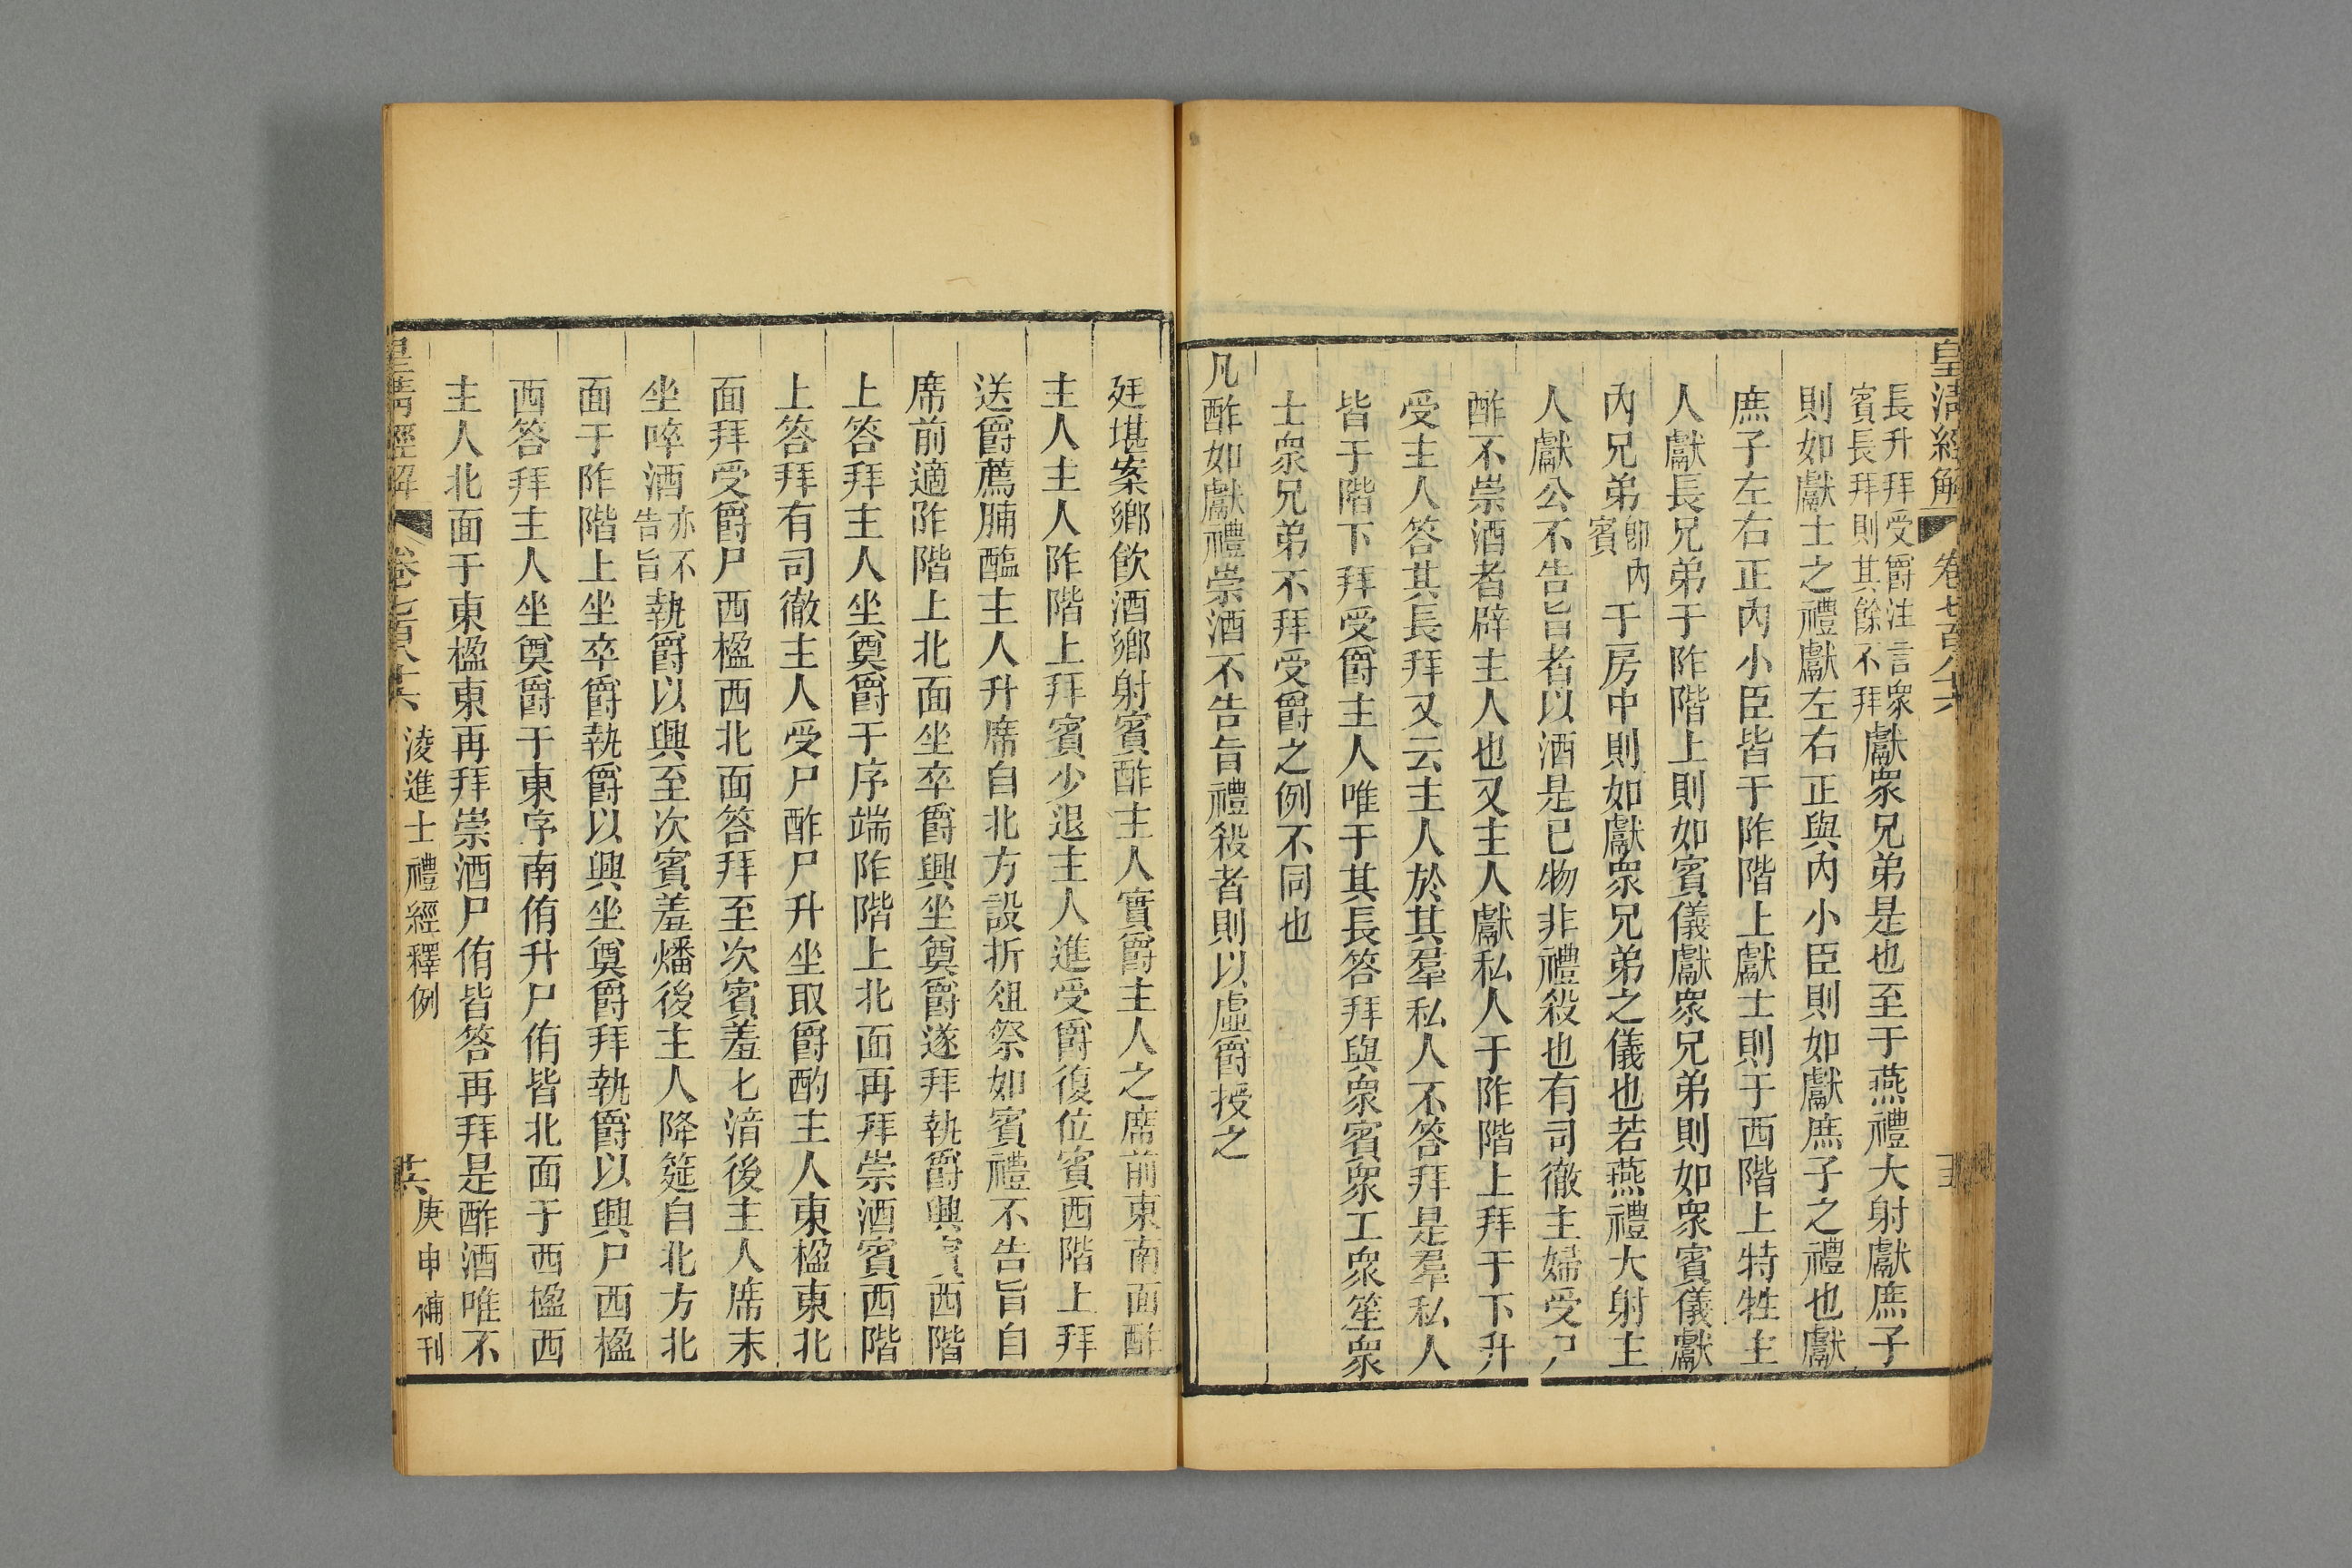 皇清經解
卷七百八十六
長升拜受爵注言衆
賓長拜則其餘不拜
獻衆兄弟是也至于燕禮大射獻庶子
則如獻士之禮獻左右正與內小臣則如獻庶子之禮也獻
庶子左右正內小臣皆于阼階上獻士則于西階上特牲主
人獻長兄弟于阼階上則如賓儀獻衆兄弟則如衆賓儀獻
內兄弟
卽內
賓
于房中則如獻衆兄弟之儀也若燕禮大射主
人獻公不告旨者以酒是己物非禮殺也有司徹主婦受尸
酢不崇酒者辟主人也又主人獻私人于阼階上拜于下升
受主人答其長拜又云主人於其羣私人不答拜是羣私人
皆于階下拜受爵主人唯于其長答拜與衆賓衆工衆笙衆
士衆兄弟不拜受爵之例不同也
凡酢如獻禮崇酒不告旨禮殺者則以虛爵授之
廷堪案鄉飲酒鄉射賓酢主人實爵主人之席前東南面酢
主人主人阼階上拜賓少退主人進受爵復位賓西階上拜
送爵薦脯醢主人升席自北方設折俎祭如賓禮不告旨自
席前適阼階上北面坐卒爵興坐奠爵遂拜執爵興賓西階
上答拜主人坐奠爵于序端阼階上北面再拜崇酒賓西階
上答拜有司徹主人受尸酢尸升坐取爵酌主人東楹東北
面拜受爵尸西楹西北面答拜至次賓羞匕湆後主人席末
坐啐酒
亦不
告旨
執爵以興至次賓羞燔後主人降筵自北方北
面于阼階上坐卒爵執爵以興坐奠爵拜執爵以興尸西楹
西答拜主人坐奠爵于東序南侑升尸侑皆北面于西楹西
主人北面于東楹東再拜崇酒尸侑皆答再拜是酢酒唯不
皇清經解
卷七百八十六
淩進士禮經釋例
庚申補刊